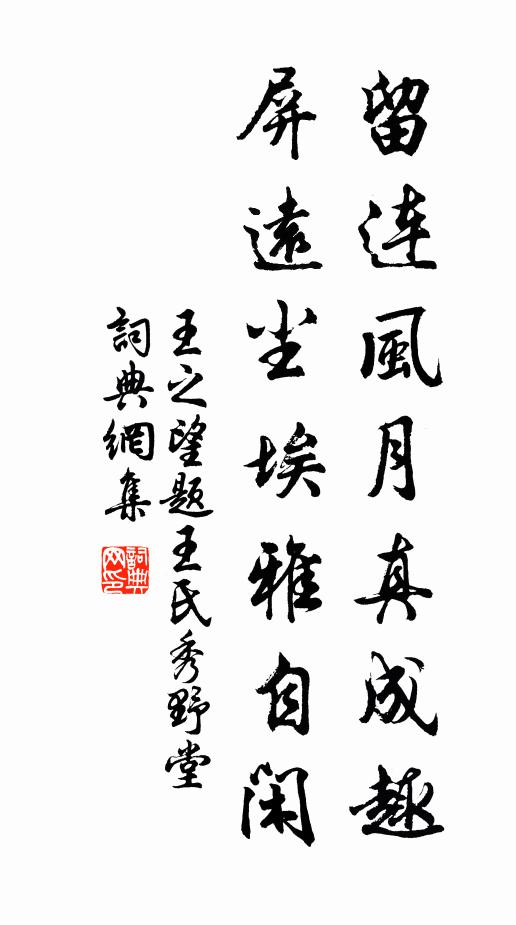 留連風月真成趣
屏遠尘埃雅自閑
王之望题王氏秀野堂
詞典網集
詞典网印